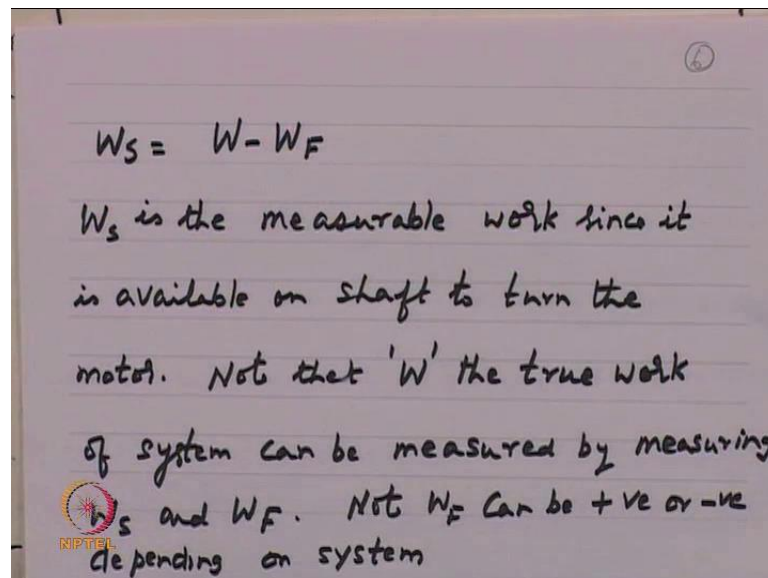 6
Ws = W - WF
Ws is the measurable work since it
is available on shaft to turn the
motor. Not that 'W' the true work
of system can be measured by measuring
Ws and WF. Not WF can be +ve or -ve
depending on system
NPTEL